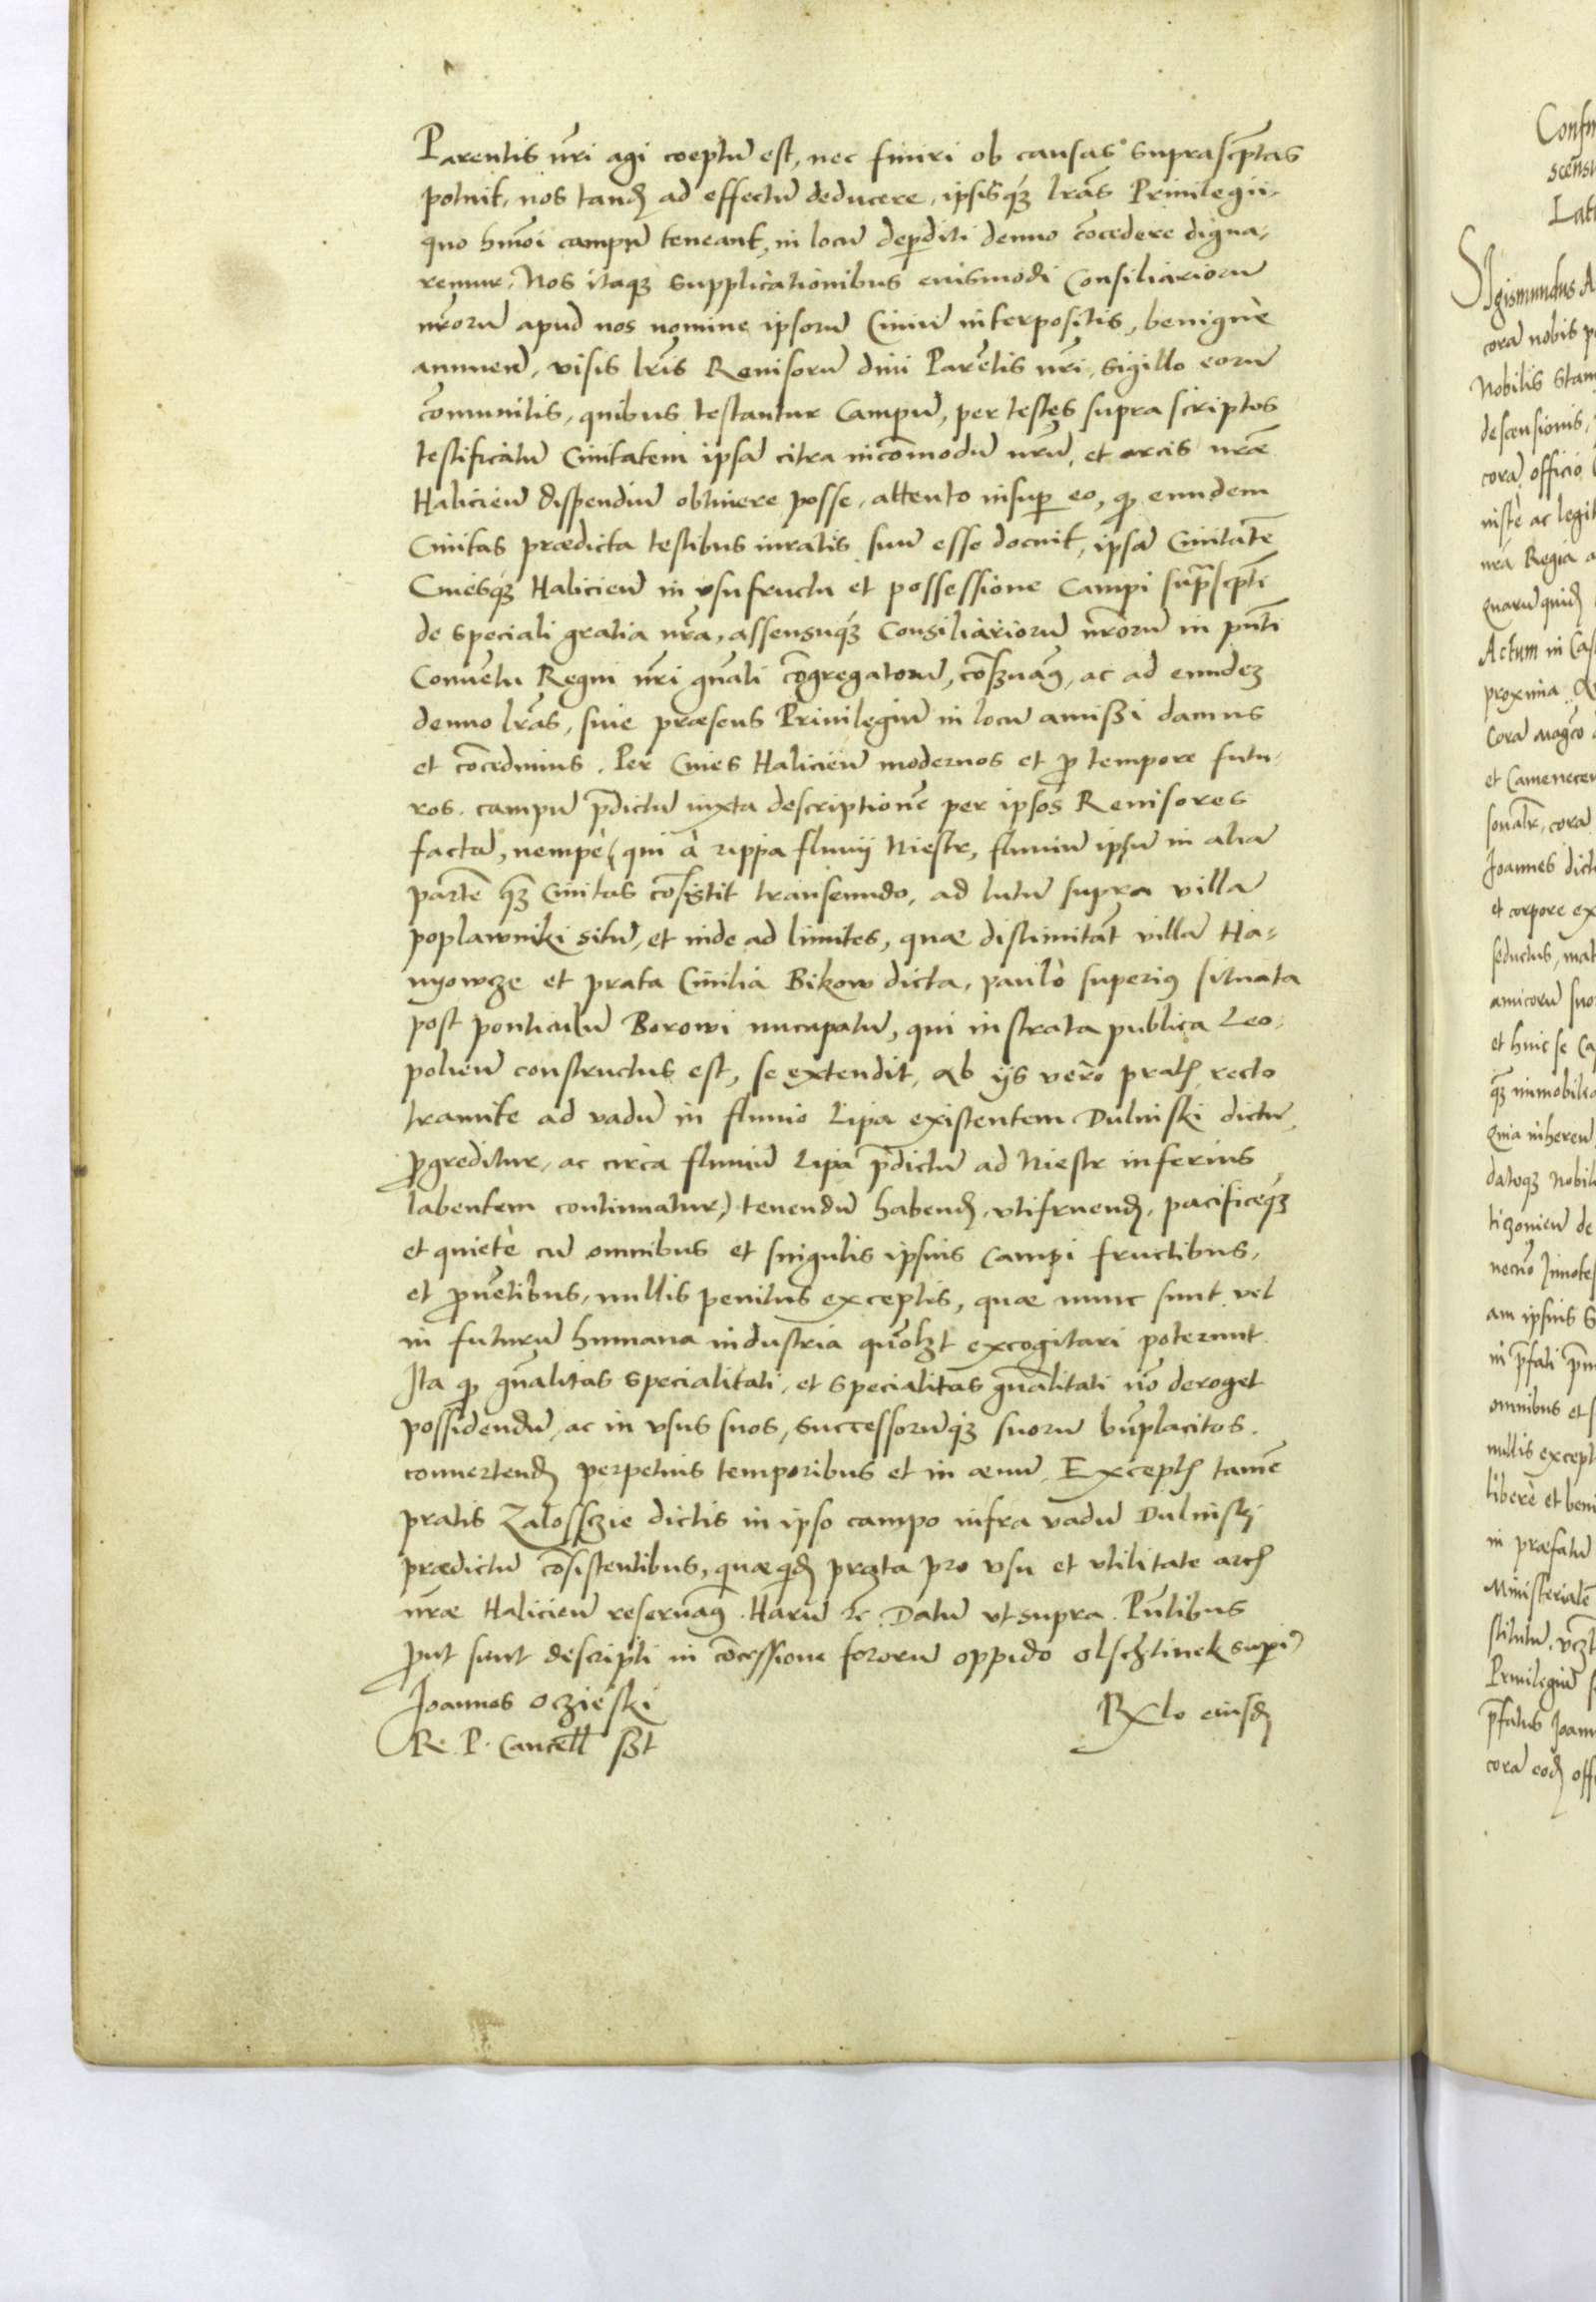 Parentis nr̃i agi coeptũ est, nec finiri ob causas suprascp̃tas
potuit, nos tandẽ ad effectũ deducere, ipsisq́ꝫ lrãs Priuilegii,
quo hmõi campũ teneant, in locũ deperditi denuo cõcedere digna,
remur. Nos itaqꝫ supplicationibus eiusmodi Consiliariorũ
nr̃orũ apud nos nomine ipsorũ Ciuiũ interpositis, benignè
annueñ, visis lrĩs Reuisorũ diui Parẽtis nr̃i, sigillo eorũ
cõmunitis, quibus testantur Campũ, per testes supra scriptos
testificatũ Ciuitatem ipsã citra incõmodũ nrũ, et arcis nrãe
Halicieñ dispendiũ obtinere posse, attento insuꝑ eo, qꝫ eundem
Ciuitas praedicta testibus iuratis suũ esse docuit, ipsã Ciuitatẽ
Ciuesq́ꝫ Halicieñ in vsufructu et possessione Campi sup̃scp̃ti
de speciali gratia nr̃a, assensuq́ꝫ Consiliariorũ nr̃orũ in pn̄ti
Conuẽtu Regni nr̃i gn̄ali cõgregatorũ, cõẞuaꝰ, ac ad eundeꝫ
denuo lrãs, siue praesens Priuilegiũ in locũ amißi damus
et cõcedimus. Per Ciues Halicieñ modernos et ꝓ tempore futu,
ros. campũ p̃dictũ iuxta descriptionẽ per ipsos Reuisores
factã, nempè (qui à rippa fluuij Niestr, fluuiũ ipsũ in aliã
partẽ qꝫ Ciuitas cõsistit transeundo, ad lutũ supra villã
poplawniki sitũ, et inde ad limites, quae distimitãt villã Ha=
nyowcze et prata Ciuilia Bikow dicta, paulò superiꝰ situata
post ponticulũ Borowi nũcupatũ, qui in strata publica Leo,
polieñ constructus est, se extendit, Ab ijs verò pratꝭ recto
tramite ad vadũ in fluuio Lipa existentem Dulniski dictũ,
ꝓgreditur, ac circa fluuiũ Lipa p̃dictũ ad Niestr inferius
labentem continuatur,) tenendũ habendꝭ, vtifruendꝭ, pacificeq́ꝫ
et quietè cũ omnibus et singulis ipsius Campi fructibus,
et ꝓuẽtibus, nullis penitus exceptis, quae nunc sunt vel
in futurũ humana industria quõlꝫt excogitari poterunt.
Ita qꝫ gn̄alitas specialitati, et specialitas gn̄alitati nõ deroget
possidendũ, ac in vsus suos, successorũq́ꝫ suorũ bn̄placitos.
conuertendꝭ perpetuis temporibus et in aeuũ. Exceptꝭ tamẽ
pratis Zalossczie dictis in ipso campo infra vadũ Dulniski
praedictũ cõsistentibus, quae qidẽ prata pro vsu et vtilitate arcꝭ
nr̃ae Halicieñ reseruaꝰ. Harũ &c. Datũ vt supra. Pn̄tibus
ꝓut sunt descripti in cõcessione fororũ oppido olschtinek supiꝰ
Joannes Oczieski
R. P. Cancell sßt
Rx̃lo eiusdꝭ
Confir
scens
Lat
Sigismundus A
corã nobis p
Nobilis Stan
descensionis,
corã officio
iustè ac legit
nrã Regia a
quarũ quidꝭ
Actum in Cas
proxima
Corã Magco
et Camenecen
corã
Joannes dict
et corpore ex
seductus, mat
amicorũ suo
et huic se Ca
qꝫ immobilia
Quia inhereñ
datoqꝫ Nobili
ticzonieñ de
necnõ Innotes
am ipsius S
in p̃fati
omnibus et s
nullis except
liberè et beni
in praefatũ
Ministerialẽ
stitutũ,
Priuilegiũ
p̃fatus Joann
corã eodꝭ offi